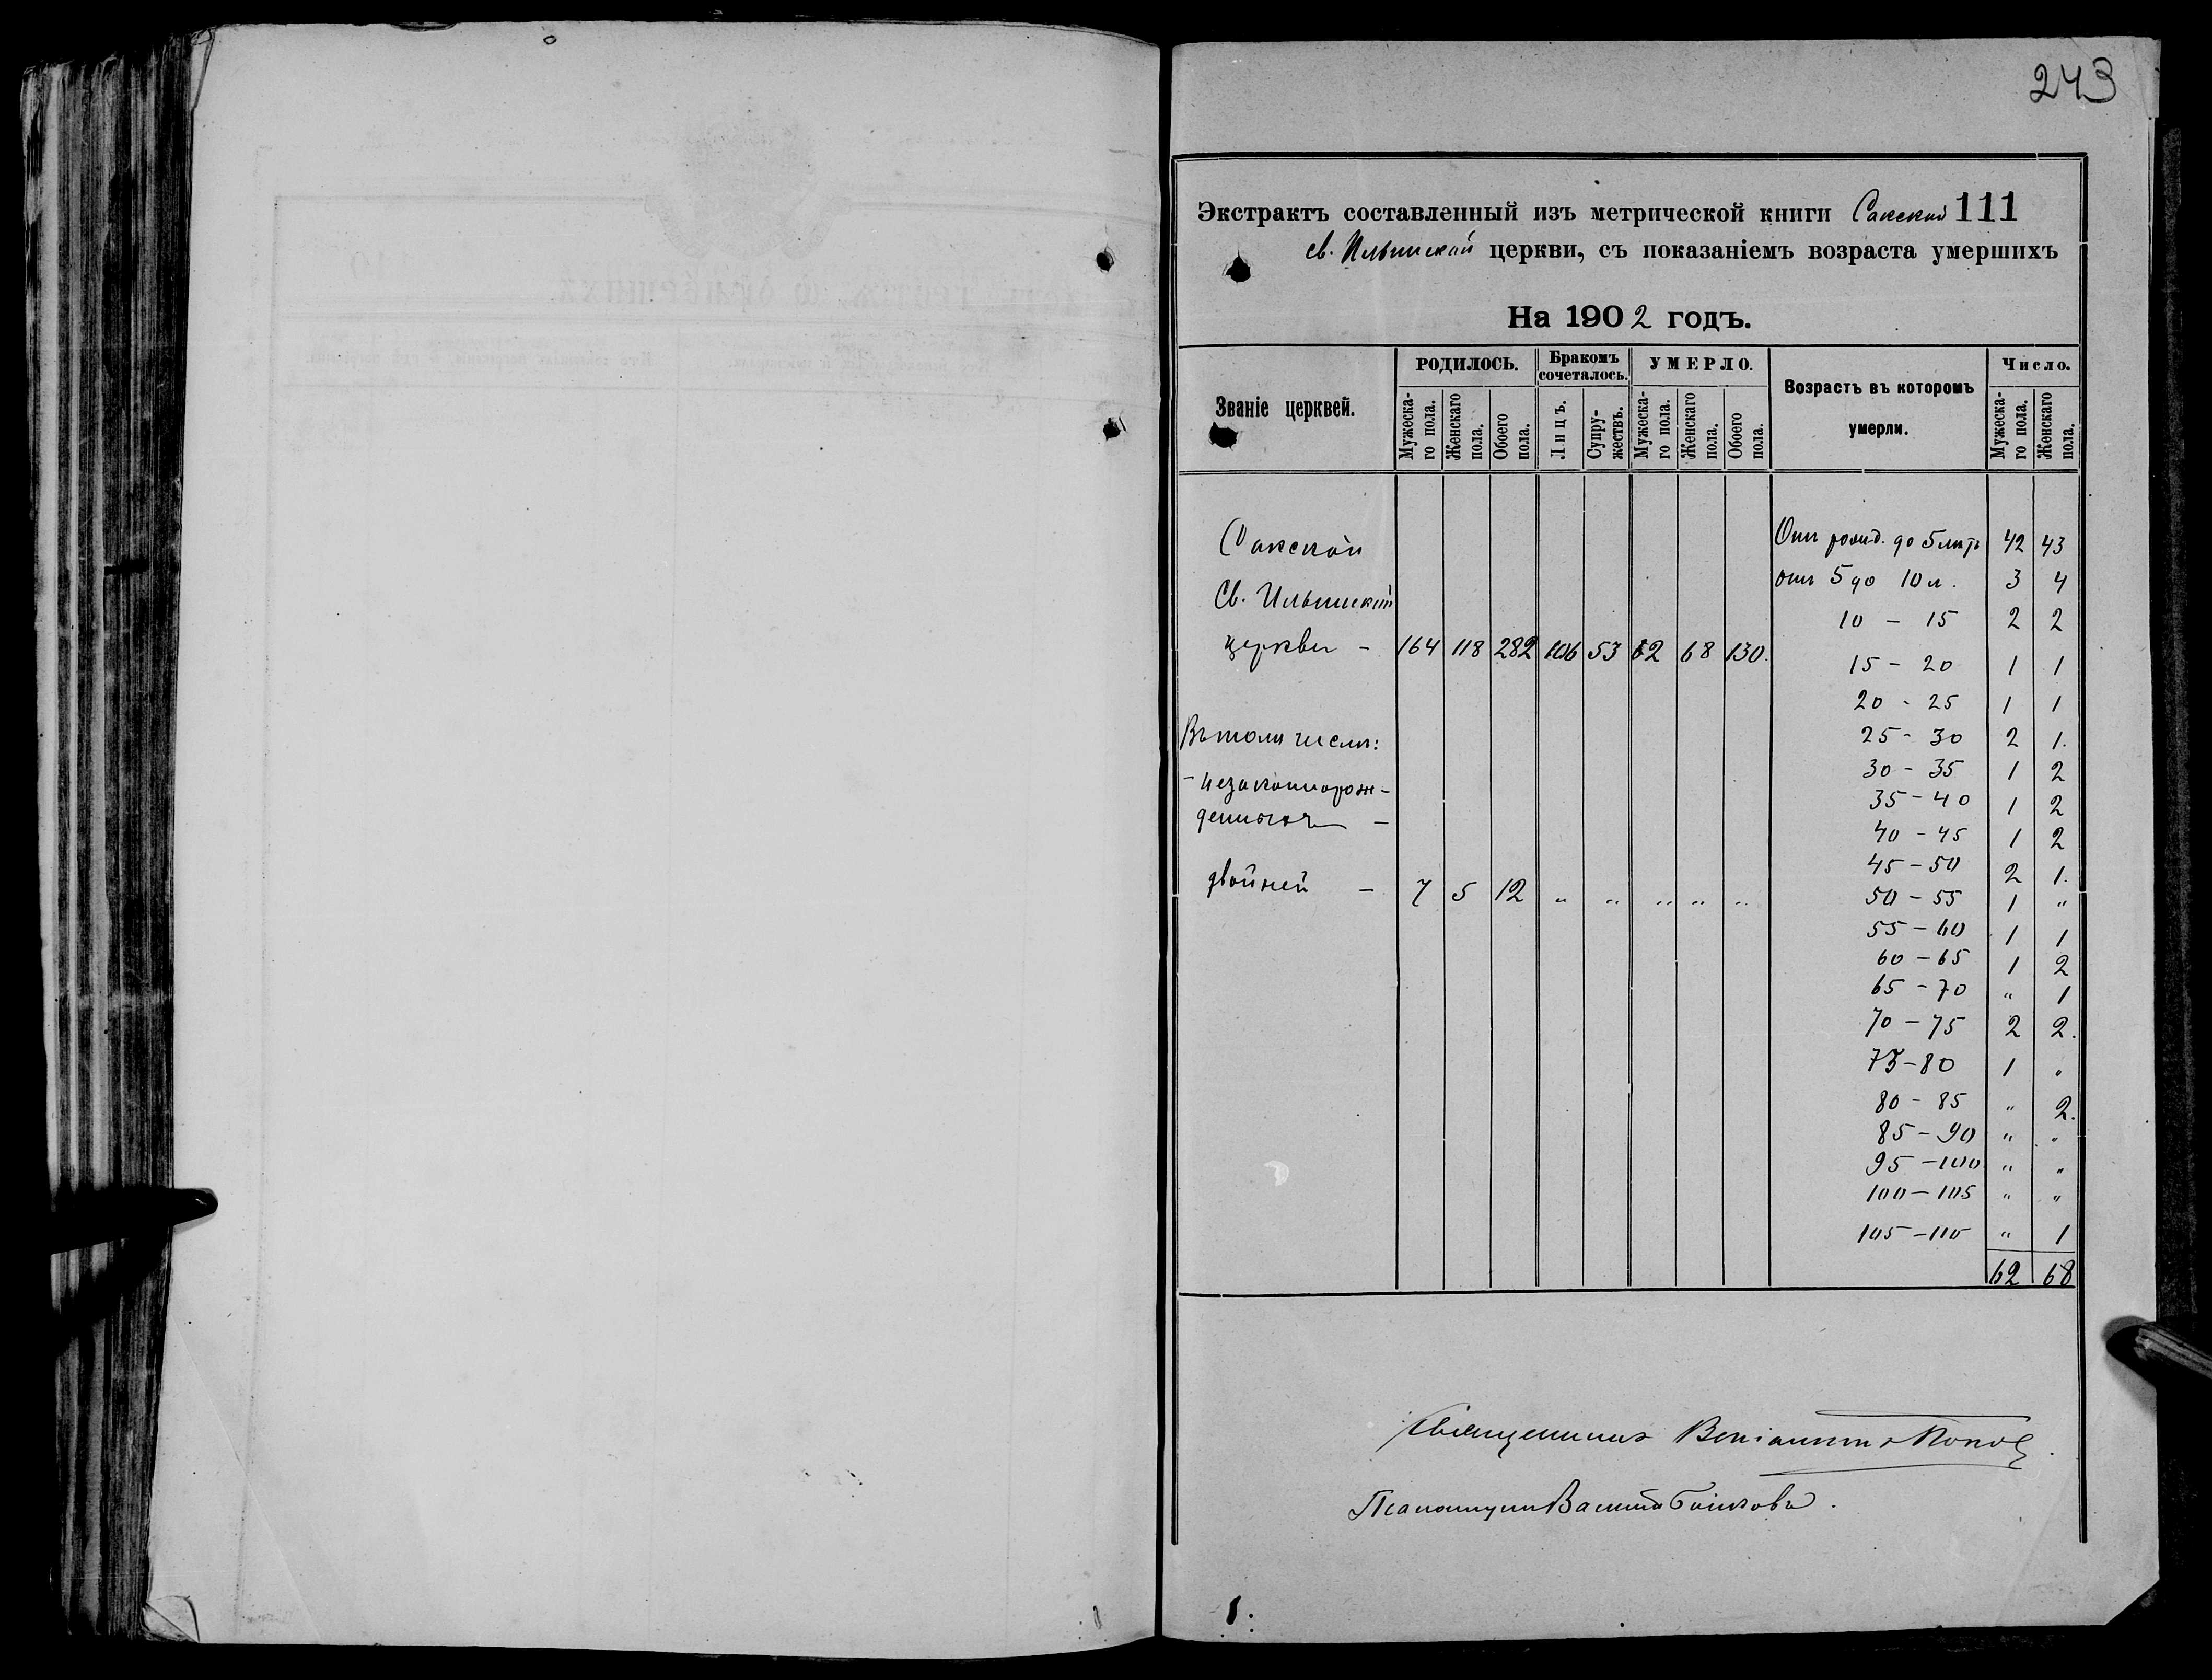 243
Экстрактъ составленный изъ метрической книги Сакской 111
св. Ильинской церкви, съ показаніемъ возраста умершихъ
На 1902 годъ.
Званіе церквей.
РОДИЛОСЬ.
Бракомъ сочеталось.
УМЕРЛО.
Возрастъ въ которомъ умерли.
Число.
Мужеска-го пола.
Женскаго пола.
Обоего пола.
Лицъ.
Супру-жествъ.
Мужеска-го пола.
Женскаго пола.
Обоего пола.
Мужеска-го пола.
Женскаго пола.
Сакской
Св. Ильинской
церкви - 164 118 282 106 53 62 68 130.
Въ томъ числѣ:
- незаконнорож-
денныхъ -
двойней - 7 5 12 " " " " "
Отъ рожд. до 5 лѣтъ 42 43
отъ 5 до 10 л. 3 4
10 - 15 2 2
15 - 20 1 1
20 - 25 1 1
25 - 30 2 1.
30 - 35 1 2
35 - 40 1 2
40 - 45 1 2
45 - 50 2 1.
50 - 55 1 "
55 - 60 1 1
60 - 65 1 2
65 - 70 " 1
70 - 75 2 2.
75 - 80 1 "
80 - 85 " 2.
85 - 90 " "
95 - 100 " "
100 - 105 " "
105 - 110 " 1
62 68
Священникъ Веніаминъ Попов
Псаломщик